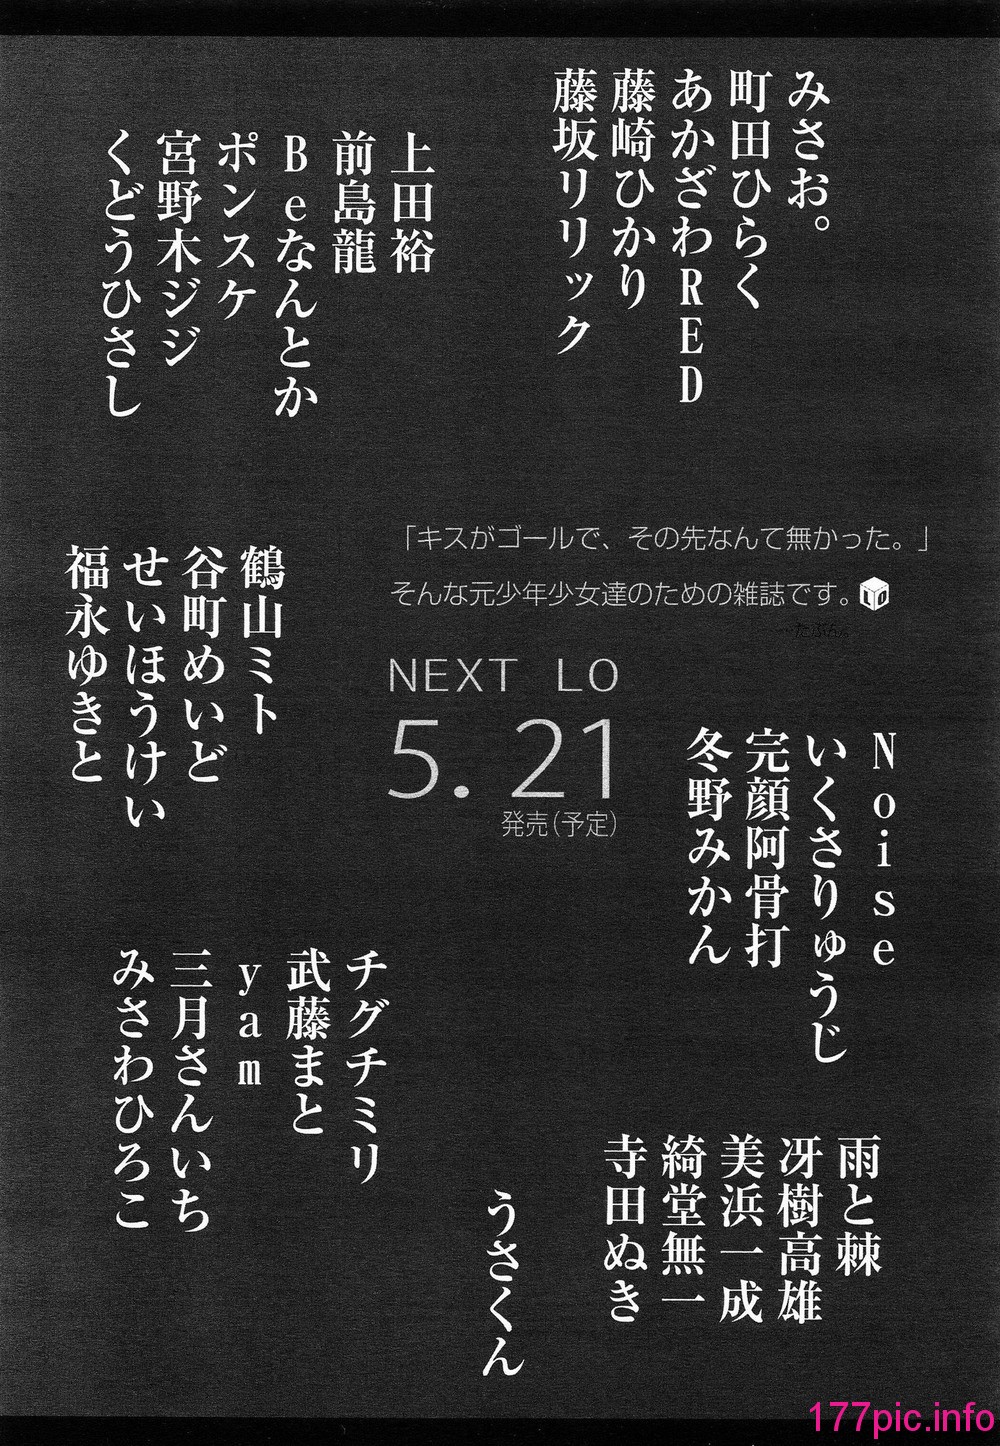 みさお。
町田ひらく
あかざわRED
藤崎ひかり
藤坂リリック
上田裕
前島龍
Beなんとか
ポンスケ
宮野木ジジ
くどうひさし
「キスがゴールで、その先なんて無かった。」
そんな元少年少女達のための雑誌です。LO
…たぶん。
NEXT LO
5. 21
発売(予定)
鶴山ミト
谷町めいど
せいほうけい
福永ゆきと
Noise
いくさりゅうじ
完顔阿骨打
冬野みかん
チグチミリ
武藤まと
yam
三月さんいち
みさわひろこ
雨と棘
冴樹高雄
美浜一成
綺堂無一
寺田ぬき
うさくん
177pic.info